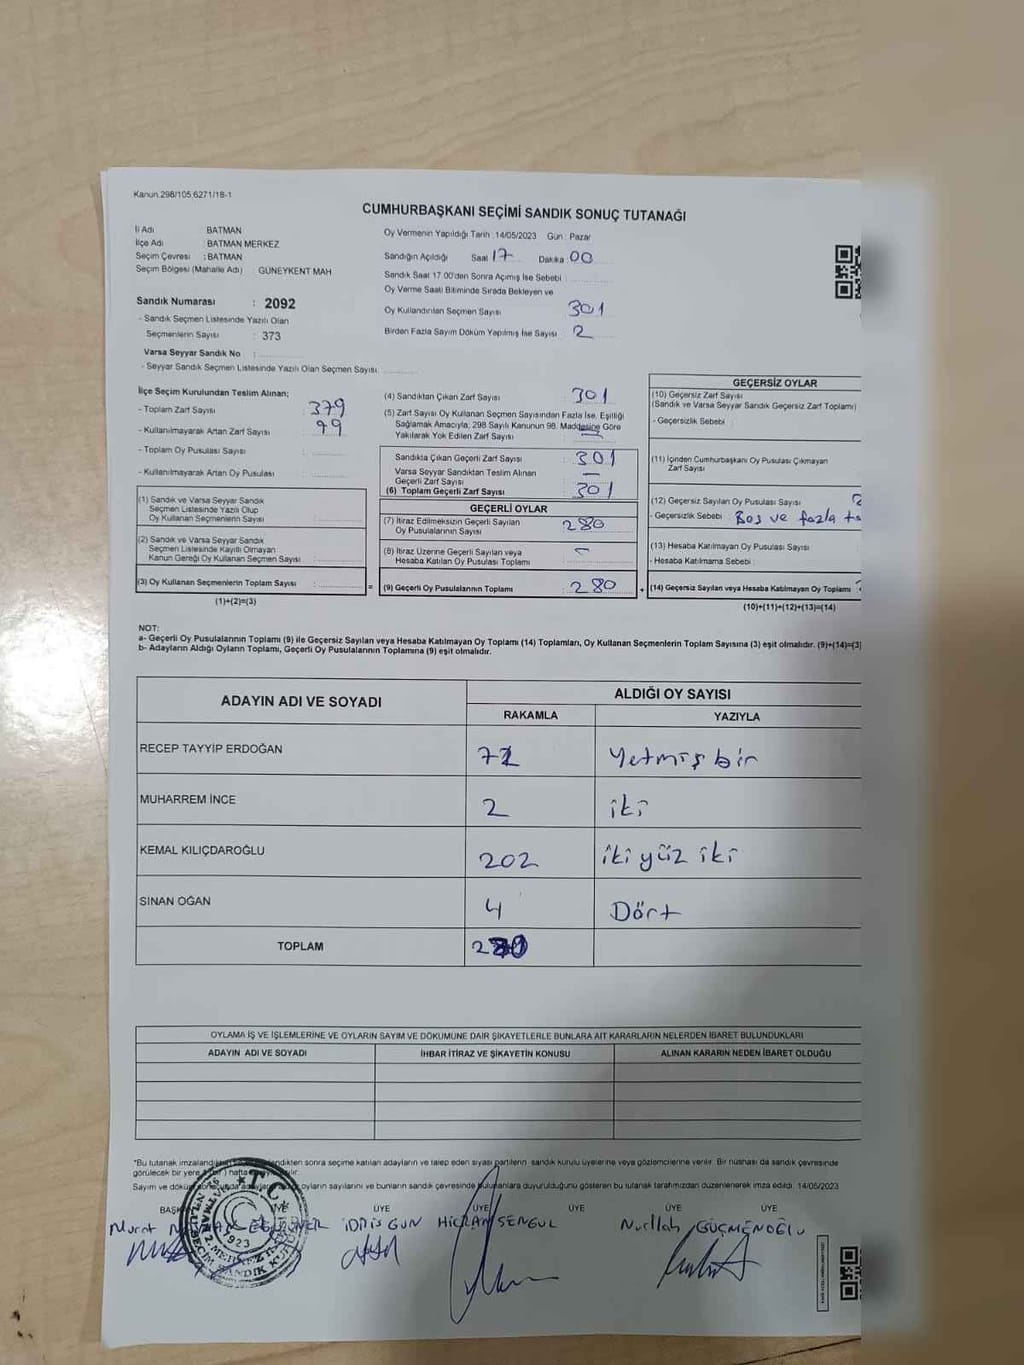 Kanun.298/105,6271/18-1
CUMHURBAŞKANI SEÇİMİ SANDIK SONUÇ TUTANAĞI
İl Adı BATMAN
İlçe Adı : BATMAN MERKEZ
Seçim Çevresi : BATMAN
Seçim Bölgesi (Mahalle Adı) : GÜNEYKENT MAH
Sandık Numarası : 2092
- Sandık Seçmen Listesinde Yazılı Olan
Seçmenlerin Sayısı : 373
Varsa Seyyar Sandık No :
- Seyyar Sandık Seçmen Listesinde Yazılı Olan Seçmen Sayısı:
Oy Vermenin Yapıldığı Tarih :14/05/2023 Gün : Pazar
Sandığın Açıldığı Saat 17 Dakika 00
Sandık Saat 17.00'den Sonra Açılmış İse Sebebi :
Oy Verme Saati Bitiminde Sırada Bekleyen ve
Oy Kullandırılan Seçmen Sayısı 301
Birden Fazla Sayım Döküm Yapılmış İse Sayısı 2
İlçe Seçim Kurulundan Teslim Alınan;
- Toplam Zarf Sayısı : 379
- Kullanılmayarak Artan Zarf Sayısı :
- Toplam Oy Pusulası Sayısı :
- Kullanılmayarak Artan Oy Pusulası :
(1) Sandık ve Varsa Seyyar Sandık
Seçmen Listesinde Yazılı Olup
Oy Kullanan Seçmenlerin Sayısı :
(2) Sandık ve Varsa Seyyar Sandık
Seçmen Listesinde Kayıtlı Olmayan
Kanun Gereği Oy Kullanan Seçmen Sayısı :
(3) Oy Kullanan Seçmenlerin Toplam Sayısı : =
(1)+(2)=(3)
(4) Sandıktan Çıkan Zarf Sayısı : 301
(5) Zarf Sayısı Oy Kullanan Seçmen Sayısından Fazla İse, Eşitliği
Sağlamak Amacıyla, 298 Sayılı Kanunun 98. Maddesine Göre
Yakılarak Yok Edilen Zarf Sayısı : —
Sandıkta Çıkan Geçerli Zarf Sayısı : 301
Varsa Seyyar Sandıktan Teslim Alınan
Geçerli Zarf Sayısı : —
(6) Toplam Geçerli Zarf Sayısı : 301
GEÇERLİ OYLAR
(7) İtiraz Edilmeksizin Geçerli Sayılan
Oy Pusulalarının Sayısı : 280
(8) İtiraz Üzerine Geçerli Sayılan veya
Hesaba Katılan Oy Pusulası Toplamı : -
(9) Geçerli Oy Pusulalarının Toplamı : 280 +
GEÇERSİZ OYLAR
(10) Geçersiz Zarf Sayısı
(Sandık ve Varsa Seyyar Sandık Geçersiz Zarf Toplamı)
- Geçersizlik Sebebi :
(11) İçinden Cumhurbaşkanı Oy Pusulası Çıkmayan
Zarf Sayısı
(12) Geçersiz Sayılan Oy Pusulası Sayısı
- Geçersizlik Sebebi : Boş ve fazla
(13) Hesaba Katılmayan Oy Pusulası Sayısı
- Hesaba Katılmama Sebebi :
(14) Geçersiz Sayılan veya Hesaba Katılmayan Oy Toplamı :
(10)+(11)+(12)+(13)=(14)
NOT:
a- Geçerli Oy Pusulalarının Toplamı (9) ile Geçersiz Sayılan veya Hesaba Katılmayan Oy Toplamı (14) Toplamları, Oy Kullanan Seçmenlerin Toplam Sayısına (3) eşit olmalıdır. (9)+(14)=(3)
b- Adayların Aldığı Oyların Toplamı, Geçerli Oy Pusulalarının Toplamına (9) eşit olmalıdır.
ADAYIN ADI VE SOYADI ALDIĞI OY SAYISI
RAKAMLA YAZIYLA
RECEP TAYYİP ERDOĞAN Yetmiş bir
MUHARREM İNCE 2 iki
KEMAL KILIÇDAROĞLU 202 iki yüz iki
SİNAN OĞAN 4 Dört
TOPLAM
OYLAMA İŞ VE İŞLEMLERİNE VE OYLARIN SAYIM VE DÖKÜMÜNE DAİR ŞİKAYETLERLE BUNLARA AİT KARARLARIN NELERDEN İBARET BULUNDUKLARI
ADAYIN ADI VE SOYADI İHBAR İTİRAZ VE ŞİKAYETİN KONUSU ALINAN KARARIN NEDEN İBARET OLDUĞU
*Bu tutanak sonra seçime katılan adayların ve talep eden siyasi partilerin sandık kurulu üyelerine veya gözlemcilerine verilir. Bir nüshası da sandık çevresinde
görülecek bir yere hafta
Sayım ve oyların sayılarını ve bunların sandık çevresinde duyurulduğunu gösteren bu tutanak tarafımızdan düzenlenerek imza edildi. 14/05/2023
ÜYE ÜYE ÜYE ÜYE
Murat İDRİS GÜN HİCRAN ŞENGÜL Nurllah GÜÇMENOĞLU
T.C.
1923